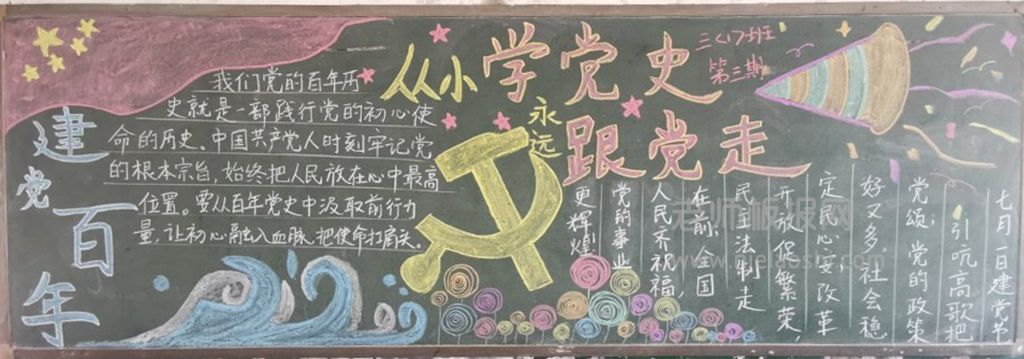 建党百年
我们党的百年历
史就是一部践行党的初心使
命的历史。中国共产党人时刻牢记党
的根本宗旨,始终把人民放在心中最高
位置。要从百年党史中汲取前行力
量,让初心融入血脉,把使命扛肩头。
从小学党史
永远
跟党走
三〈1〉班
第三期
七月一日建党节
引吭高歌把
党颂,党的政策
好又多,社会稳
定民心安,改革
开放促繁荣,
民主法制走
在前,全国
人民齐祝福
党的事业
更辉煌!
老师板报网